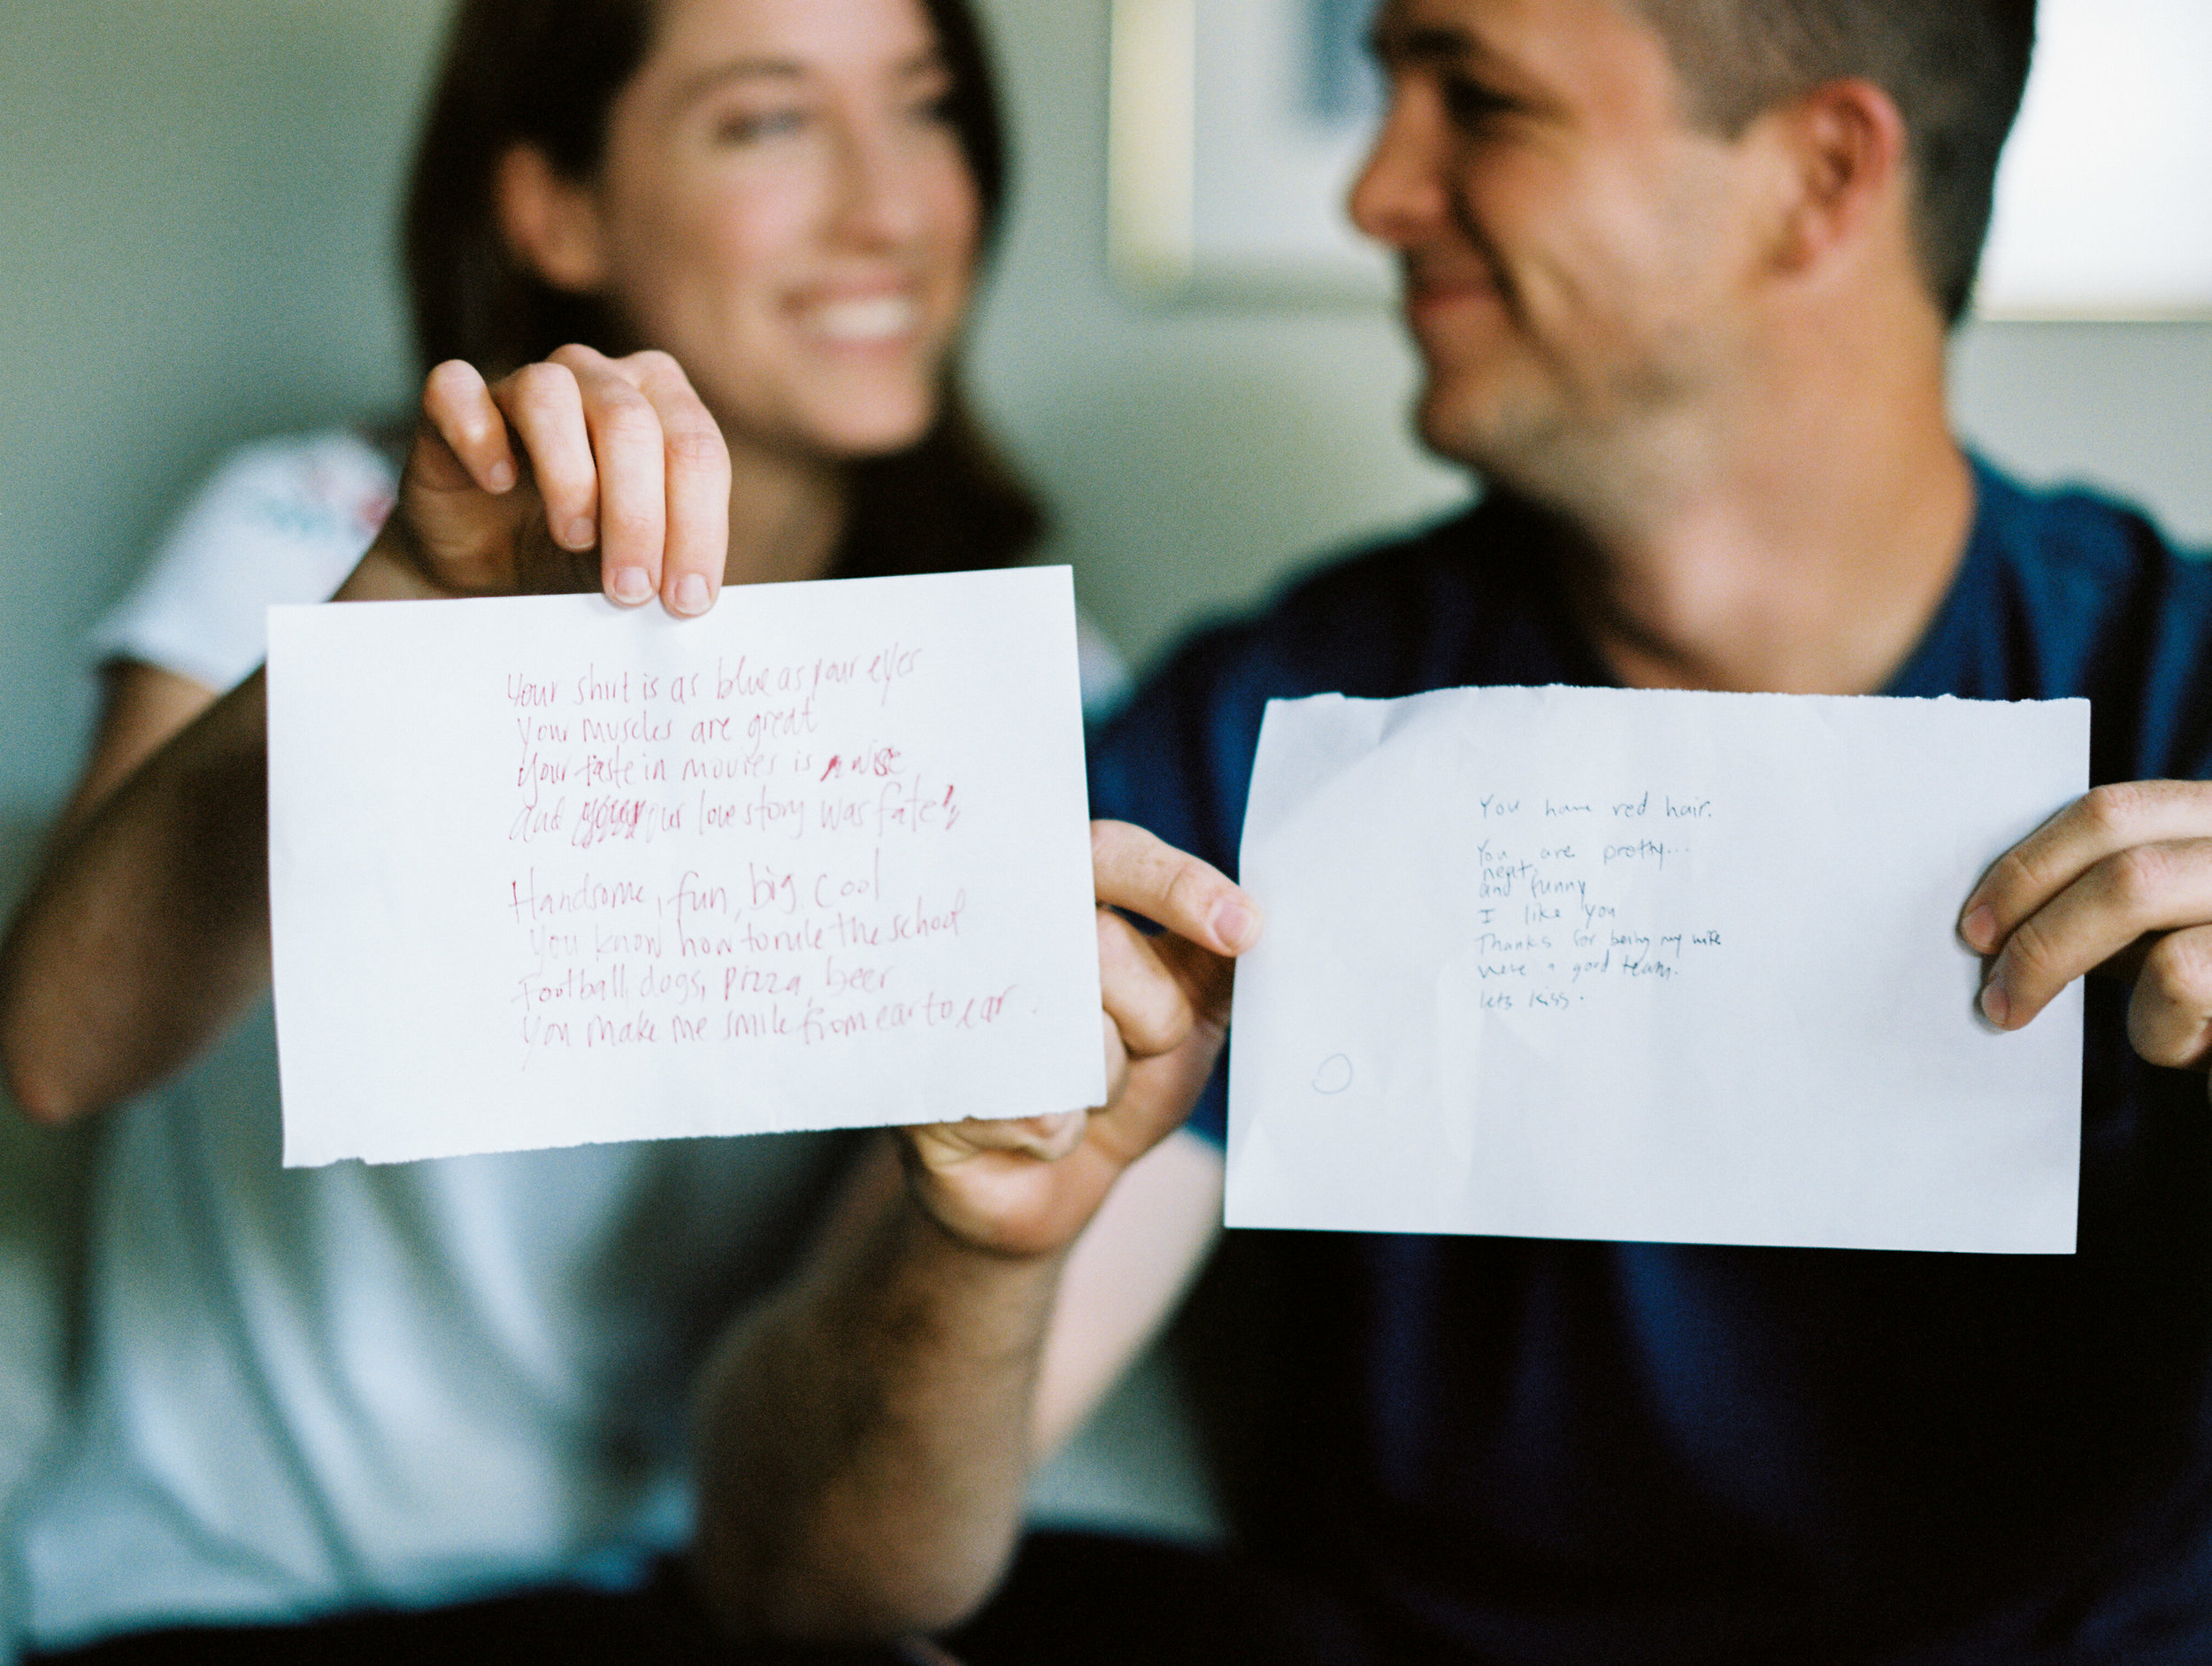 Your shirt is as blue as your eyes
Your muscles are great
Your taste in movies is wise
and our love story was fate!
Handsome, fun, big, cool
You know how to rule the school
Football, dogs, pizza, beer
You make me smile from ear to ear.
You have red hair.
You are pretty...
neat,
and funny
I like you
Thanks for being my wife
were a good team.
lets kiss.